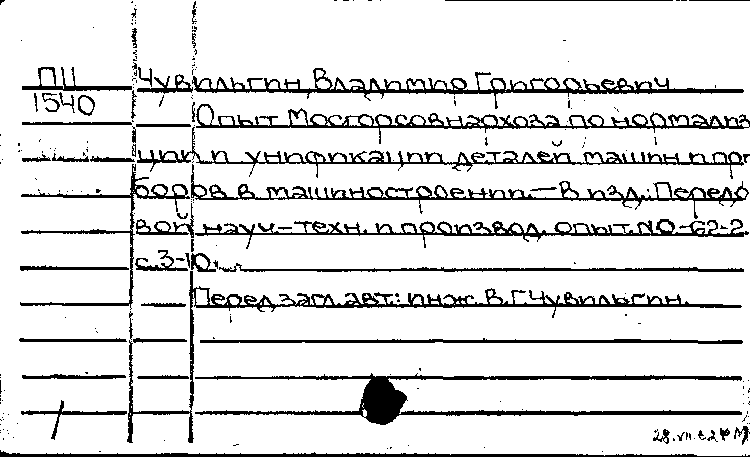 ПII Чувильгин, Владимир Григорьевич
1540 Опыт Мосгорсовнархоза по нормализа
ции и унификации деталей машин и при
боров в машиностроении. — В изд.: Передо
вой науч.-техн. и производ. опыт. № 62-2
с. 3-10
Перед загл. авт: инж. В.Г. Чувильгин.